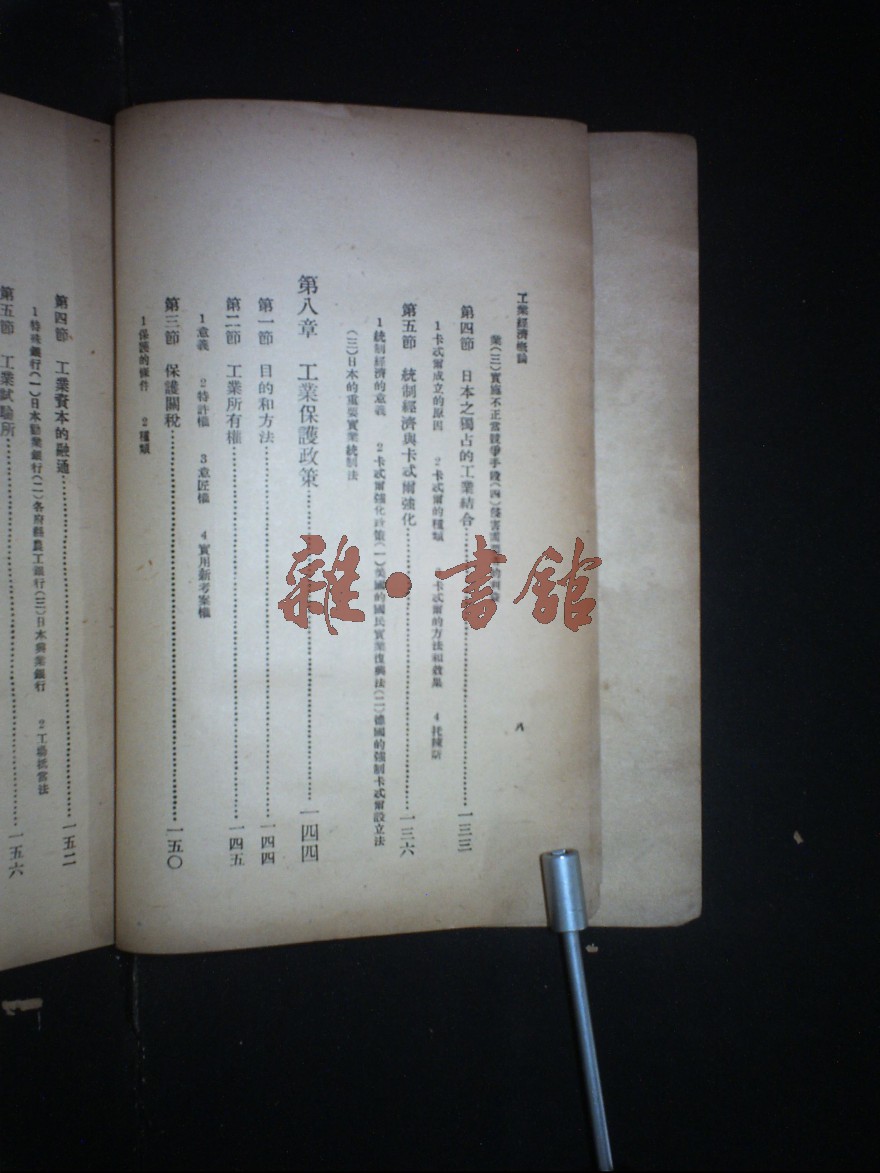 工業經濟概論
八
業(三)實施不正當競爭手段(四)侵害需
第四節 日本之獨占的工業結合…………一三三
1卡忒爾成立的原因 2卡忒爾的種類 卡忒爾的方法和效果 4托辣斯
第五節 統制經濟與卡忒爾強化…………一三六
1統制經濟的意義 2卡忒爾強化政策(一)美國的國民實業復興法(二)德國的強制卡忒爾設立法
(三)日本的重要實業統制法
第八章 工業保護政策…………一四四
第一節 目的和方法…………一四四
第二節 工業所有權…………一四五
1意義 2特許權 3意匠權 4實用新考案權
第三節 保護關稅…………一五〇
1保護的條件 2種類
第四節 工業資本的融通…………一五二
1特殊銀行(一)日本勸業銀行(二)各府縣農工銀行(三)日本興業銀行 2工場抵當法
第五節 工業試驗所…………一五六
雜·書館